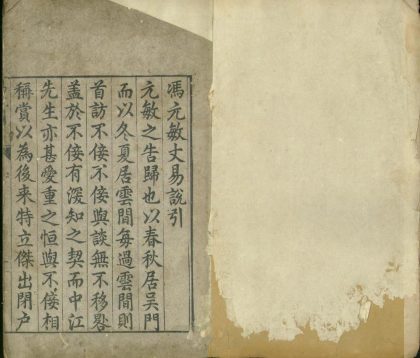 馮元敏文易說引
元敏之告歸也以春秋居吳門
而以冬夏居雲間每過雲間則
首訪不佞不佞與談無不移晷
蓋於不佞有深知之契而中江
先生亦甚愛重之恒與不佞相
稱賞以為後来特立傑出閉户